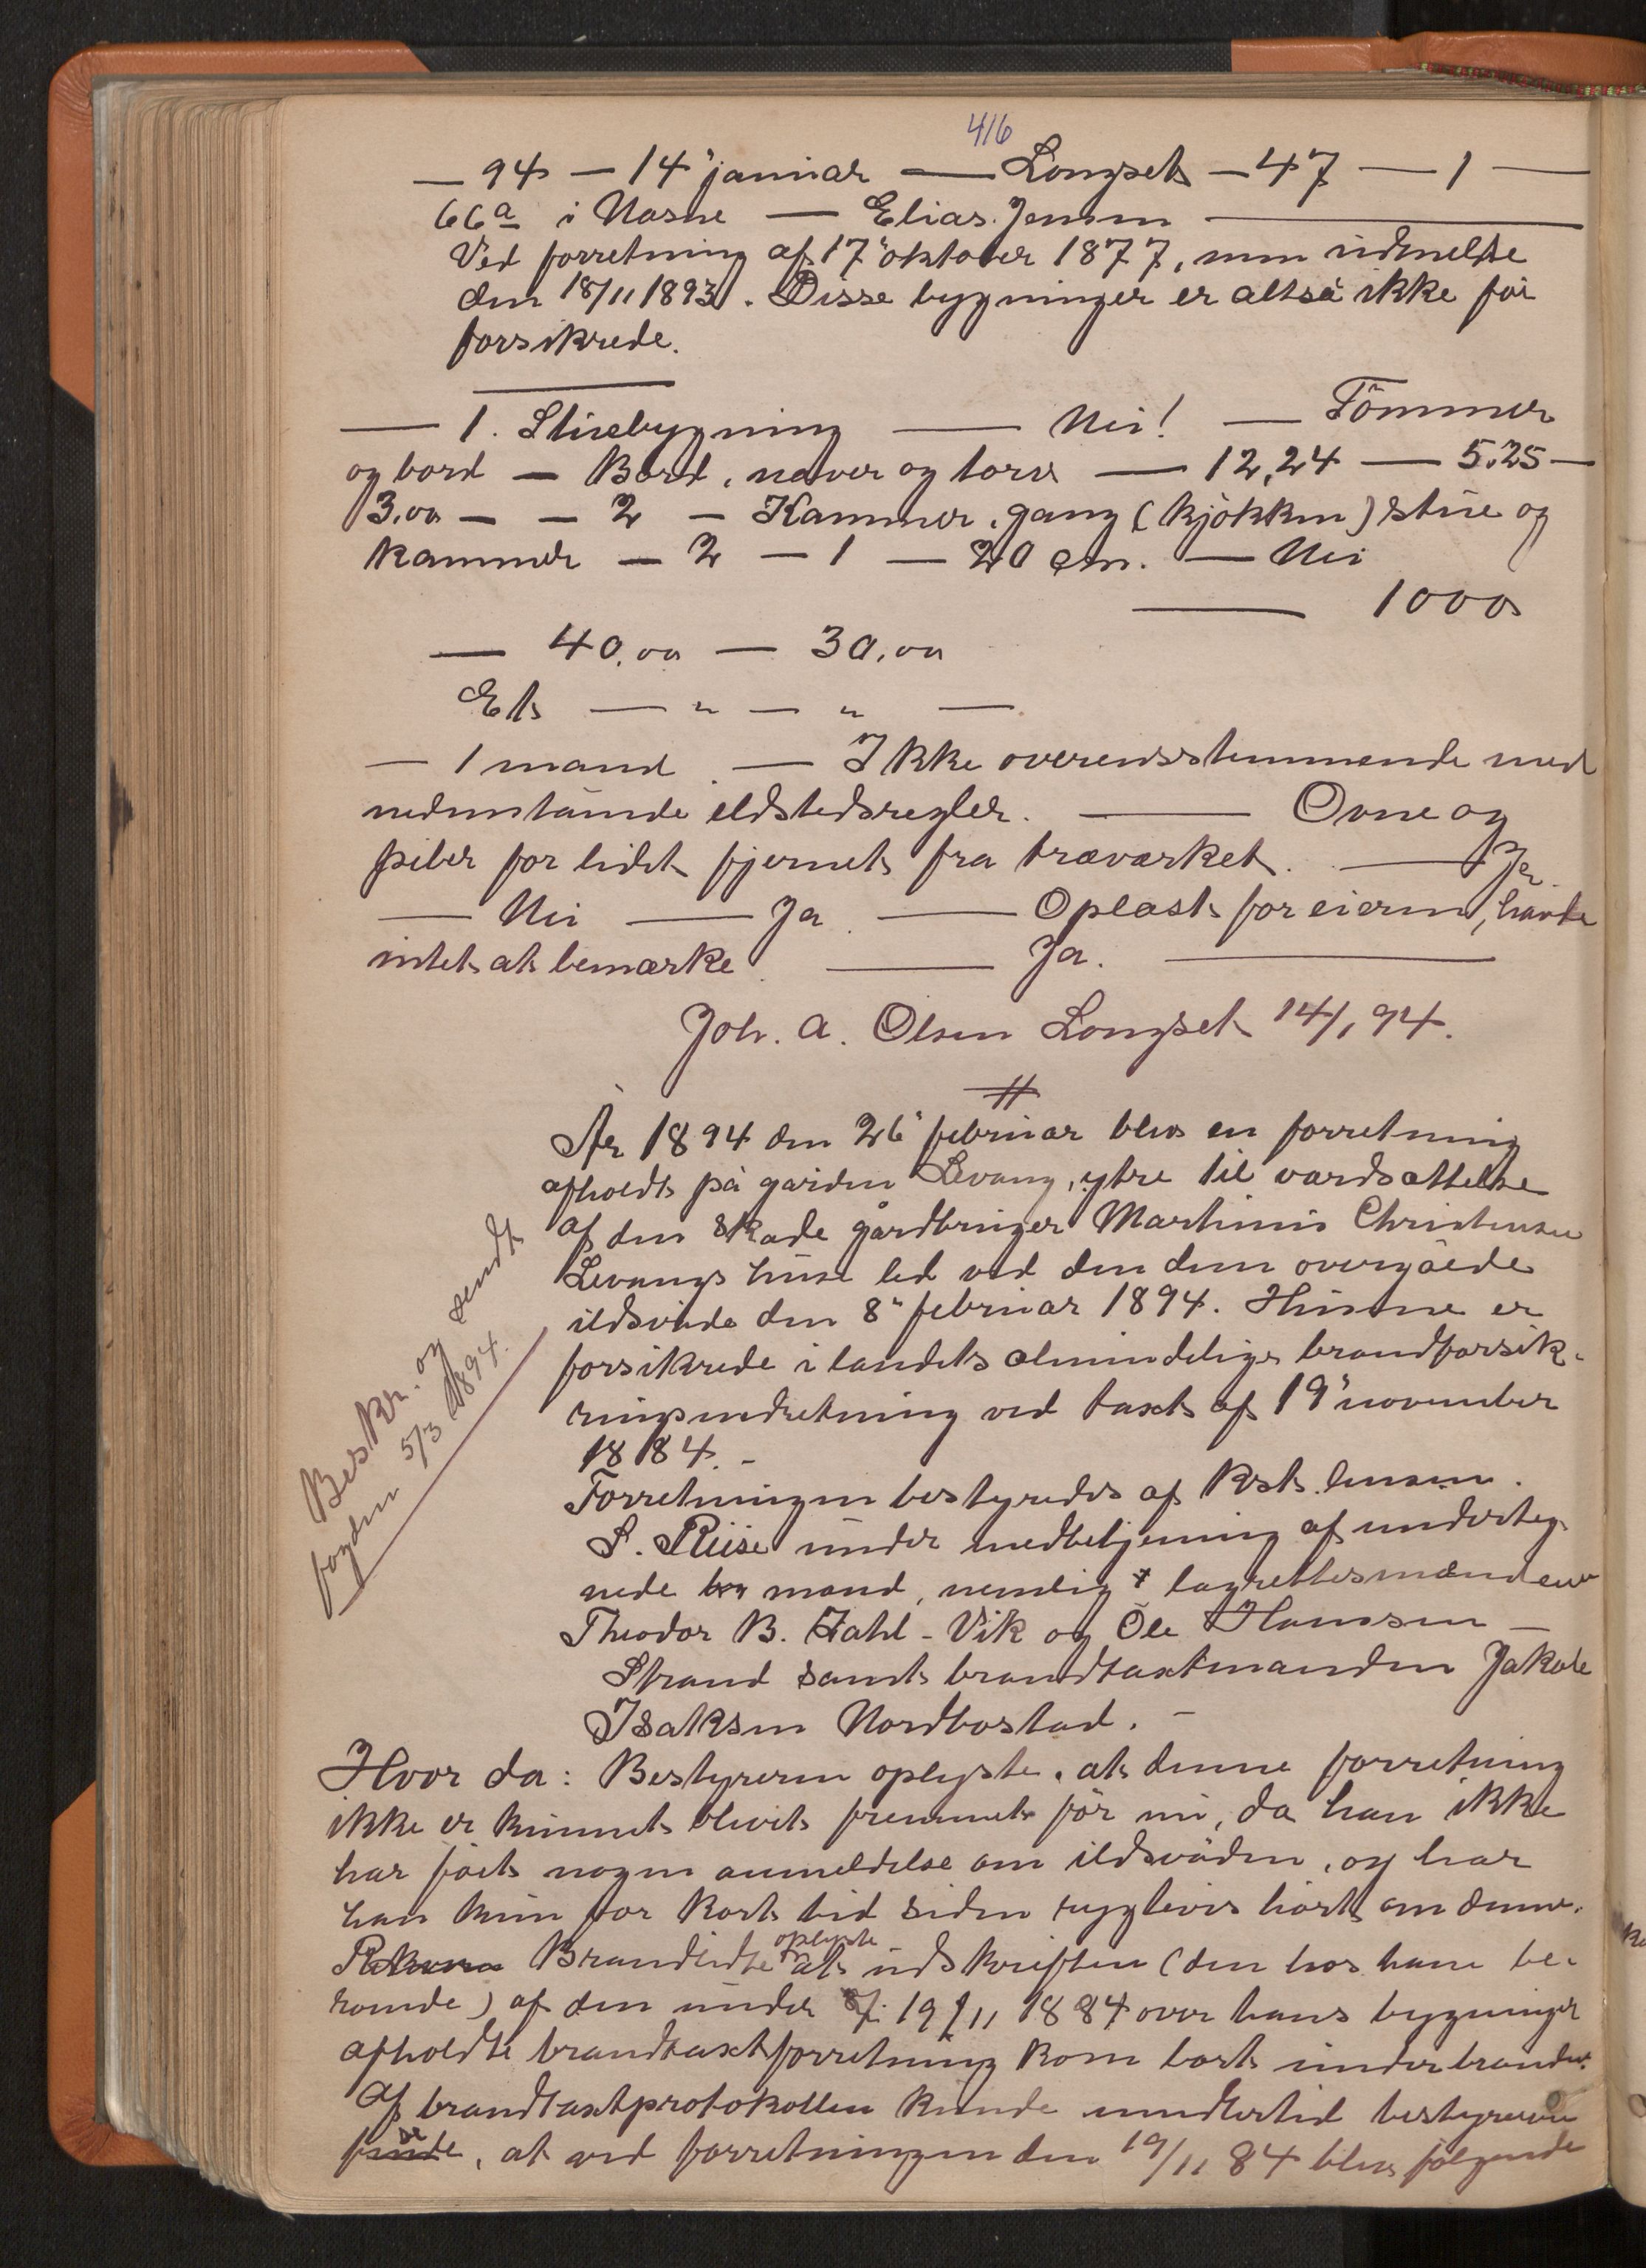 416
— 94 — 14" januar — Longset — 47 — 1 —
66a i Nasne — Elias Jensen —
Ved forretning af 17" oktober 1877, men udmeldte
den 18/11 1893. Disse bygninger er altså ikke før
forsikrede.
— 1. Stuebygning — Nei! — Tömmer
og bord — Bord, næver og torv — 12,24 — 5,25 —
3,00 — — 2 — Kammer, gang (kjökken) stue og
kammer — 2 — 1 — 20 cm. — Nei
— 1000
— 40,00 — 30,00
Et — " — " —
— 1 mand. — Ikke overensstemmende med
nedenstående ildstedsregler. — Ovne og
piber for lidet fjernet fra træværket. — Ja
— Nei — Ja — Oplæst for eieren, havde
intet at bemærke. — Ja. —
Joh. A. Olsen Longset 14/1 94.
#
År 1894 den 26" februar blev en forretning
afholdt på gården Levang, ytre til værdsættelse
af den skade gårdbruger Martinus Christensen
Levangs huse led ved den dem overgåede
ildsvåde den 8" februar 1894. Husene er
forsikrede i landets almindelige brandforsik-
ringsindretning ved taxt af 19" november
1884. -
Forretningen bestyredes af kst. lensm.
S. Riise under medbetjening af underteg-
nede mænd, nemlig lagrettesmændene
Theodor B. Zahl - Vik og Ole Hanssen —
Strand samt brandtaxtmanden Jakob
Isaksen Nordbostad. -
Beskr. og sendt
fogden 5/3 1894.
Hvor da: Bestyreren oplyste, at denne forretning
ikke er kunnet blevet fremmet før nu, da han ikke
har fået nogen anmeldelse om ildsvåden, og har
han kun for kort tid siden rygtevis hört om denne.
Brandlidte oplyste at udskriften (den hos ham be-
roende) af den under 19/11 1884 over hans bygninger
afholdte brandtaxtforretning kom bort under branden.
Af brandtaxtprotokollen kunde imidlertid bestyreren
se, at ved forretningen den 19/11 84 blev fölgende